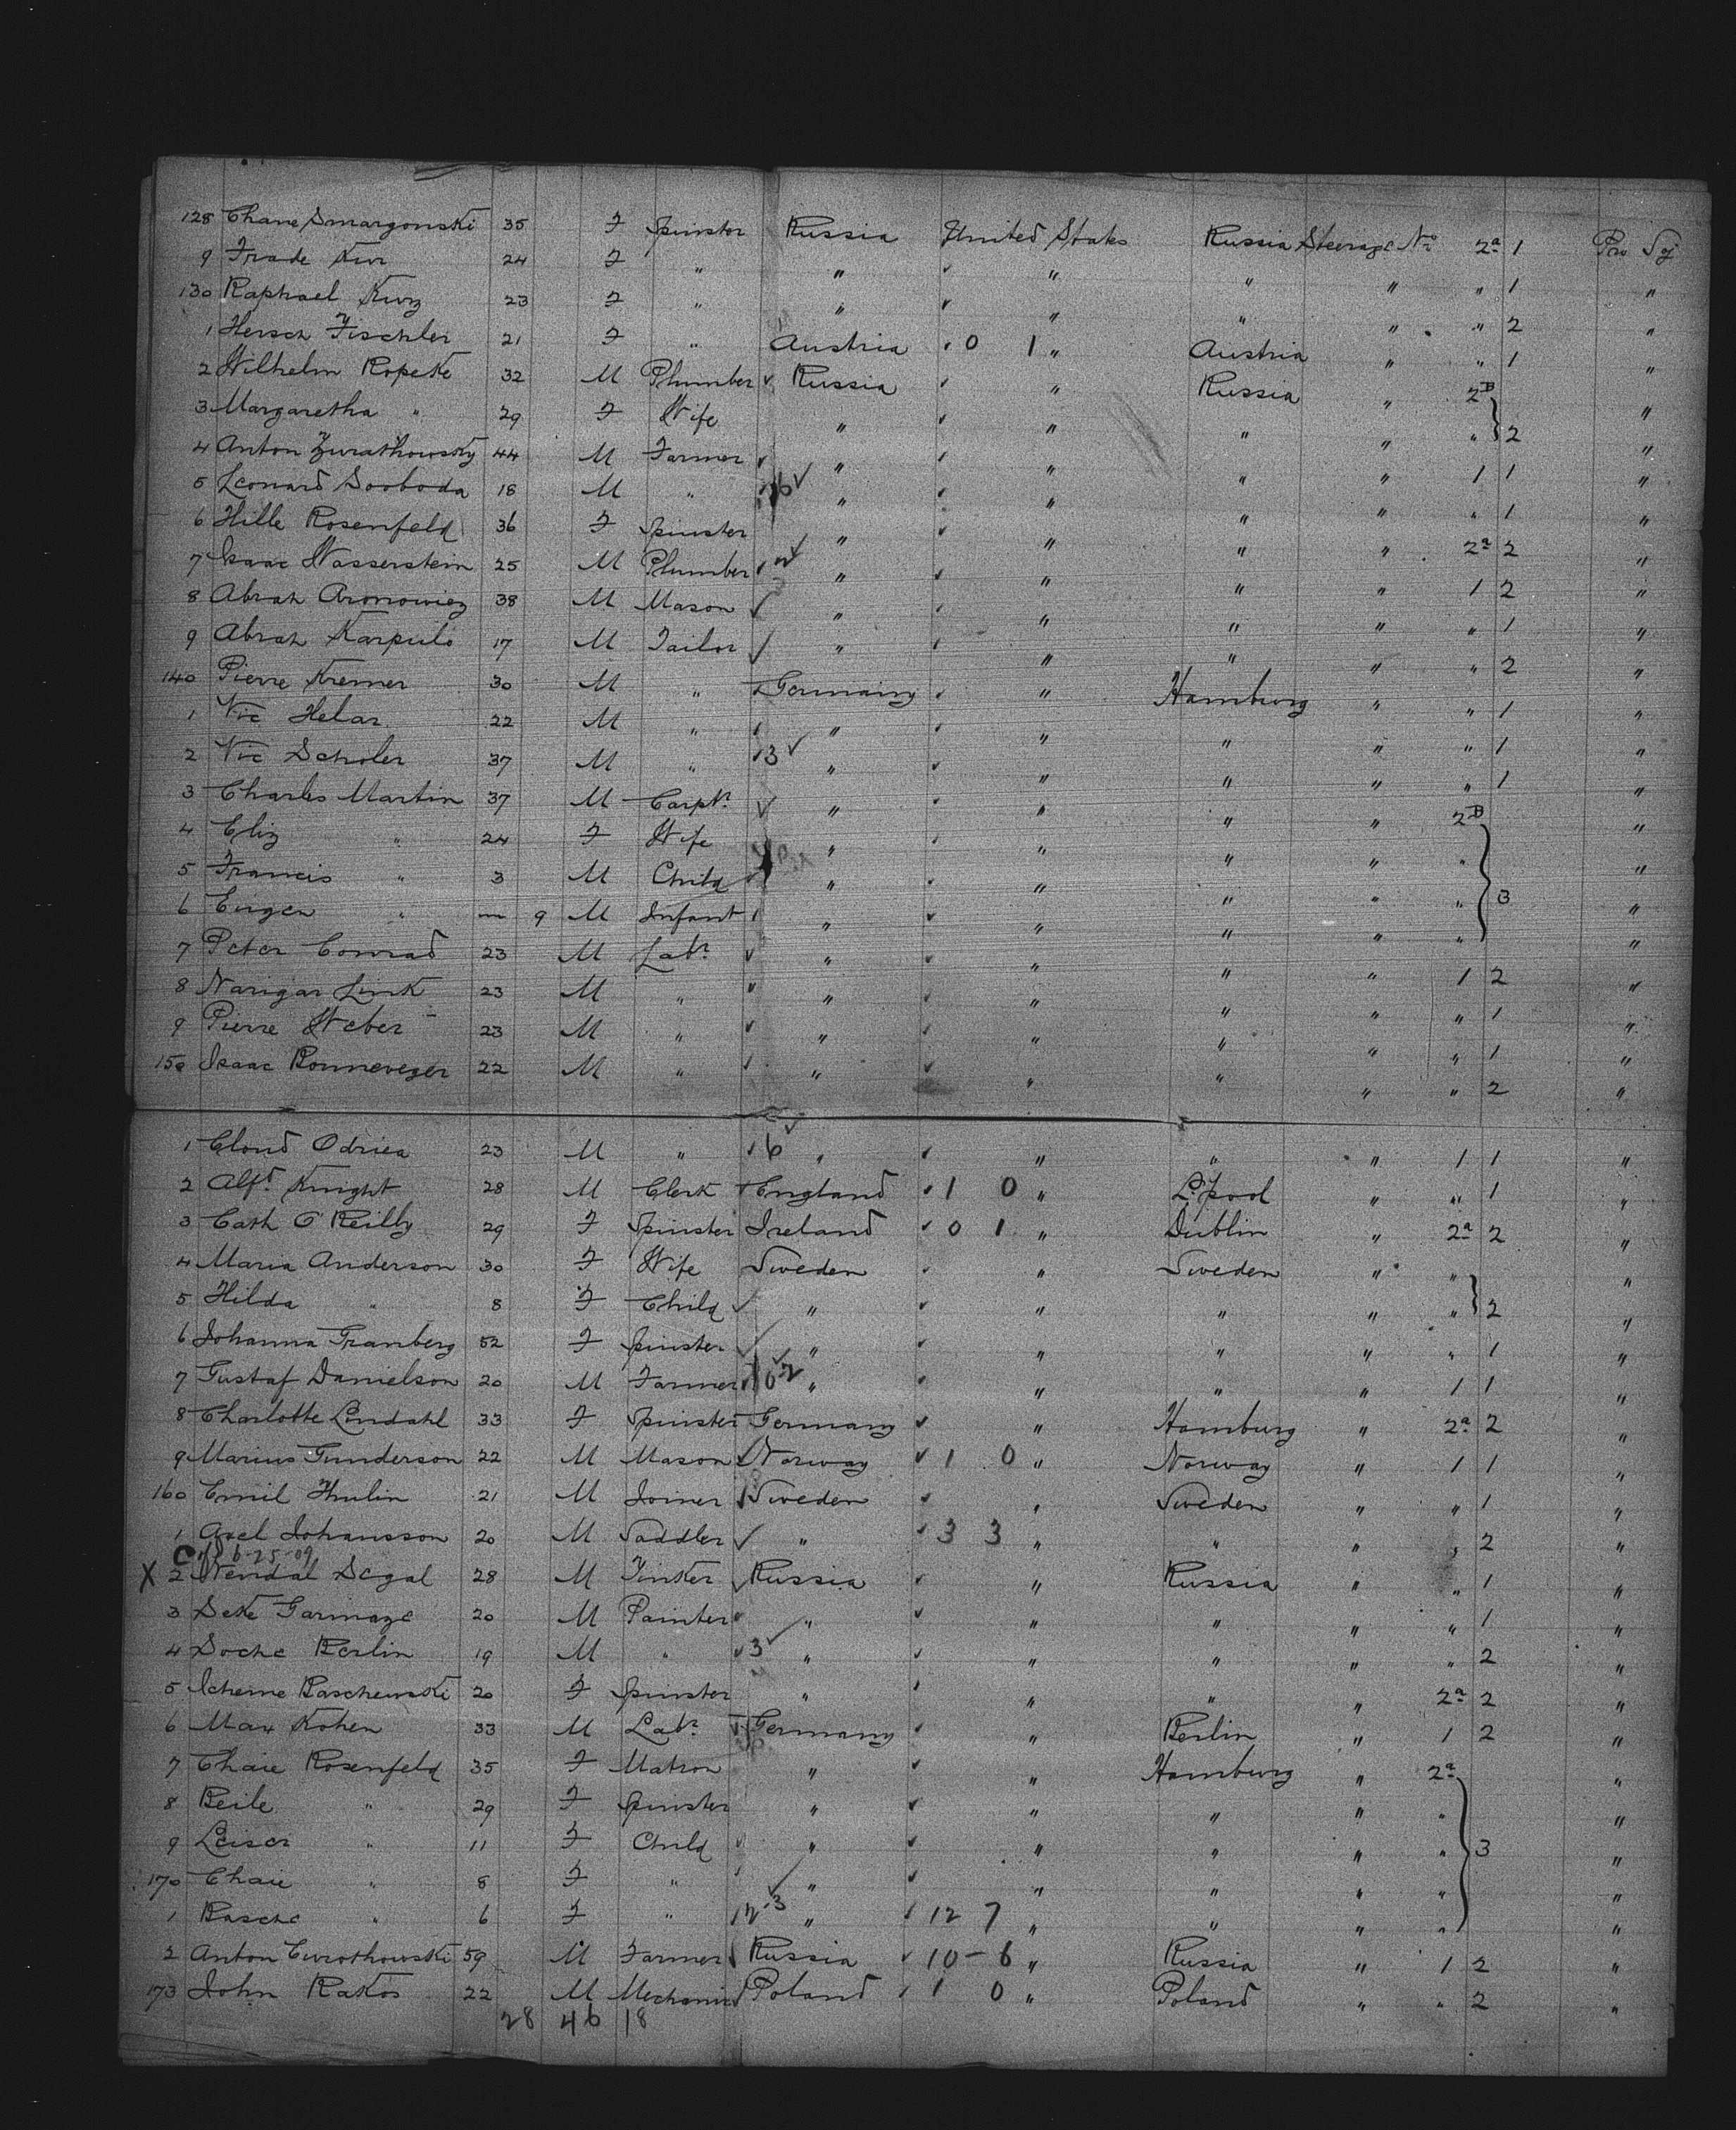 128 Chane Smargonski 35 F Spinster Russia United States Russia Steerage No 2a 1 Pro Soj
9 Frade Kur 24 F " " " " " " 1 "
130 Raphael Kurz 23 F " " " " " " 2 "
1 Hersch Fischler 21 F " Austria 0 1 " Austria " " 1 "
2 Wilhelm Ropeke 32 M Plumber Russia " Russia " 2B "
3 Margaretha " 29 F Wife " " " " " 2 "
4 Anton Zurathowsky 44 M Farmer " " " " 1 1 "
5 Leonard Sooboda 18 M " " " " " " 1 "
6 Hille Rosenfeld 36 F Spinster " " " " 2a 2 "
7 Isaac Wasserstein 25 M Plumber " " " " 1 2 "
8 Abrah Aronowiez 38 M Mason " " " " " 1 "
9 Abrah Karpulo 17 M Tailor " " " " " 2 "
140 Pierre Kremer 30 M " Germany " Hamburg " " 1 "
1 Nic Helar 22 M " " " " " " 1 "
2 Nic Scholer 37 M " 3 " " " " " 1 "
3 Charles Martin 37 M Carptr " " " " 2B "
4 Eliz " 24 F Wife " " " " " "
5 Francis " 3 M Child " " " " " 3 "
6 Eugen " 9 M Infant " " " " " "
7 Peter Conrad 23 M Labr " " " " 1 2 "
8 Narigar Link 23 M " " " " " " 1 "
9 Pierre Weber 23 M " " " " " " 1 "
150 Isaac Bonneveger 22 M " " " " " " 2 "
1 Cloud Odriea 23 M " 6 " " " " 1 1 "
2 Alfd Knight 28 M Clerk England 1 0 " L'pool " " 1 "
3 Cath O'Reilly 29 F Spinster Ireland 0 1 " Dublin " 2a 2 "
4 Maria Anderson 30 F Wife Sweden " Sweden " " "
5 Hilda " 8 F Child " " " " " 2 "
6 Johanna Granberg 52 F Spinster " " " " " 1 "
7 Gustaf Danielson 20 M Farmer " " " " 1 1 "
8 Charlotte Lindahl 33 F Spinster Germany " Hamburg " 2a 2 "
9 Marius Gunderson 22 M Mason Norway 1 0 " Norway " 1 1 "
160 Emil Thulin 21 M Joiner Sweden " Sweden " " 1 "
1 Axel Johansson 20 M Saddler " 3 3 " " " " 2 "
6-25-09
X 2 Wendal Segal 28 M Tinker Russia " Russia " " 1 "
3 Seke Garmaze 20 M Painter " " " " " 1 "
4 Soche Berlin 19 M " 3 " " " " " 2 "
5 Scheine Baschewski 20 F Spinster " " " " 2a 2 "
6 Max Kohen 33 M Labr Germany " Berlin " 1 2 "
7 Chaie Rosenfeld 35 F Matron " " Hamburg " 2a "
8 Beile " 29 F Spinster " " " " " "
9 Leiser " 11 F Child " " " " " 3 "
170 Chaie " 8 F " " " " " " "
1 Basche " 6 F " " 12 7 " " " " "
2 Anton Curothowski 59 M Farmer Russia 10-6 " Russia " 1 2 "
173 John Rakos 22 M Mechanic Poland 1 0 " Poland " " 2 "
28 46 18